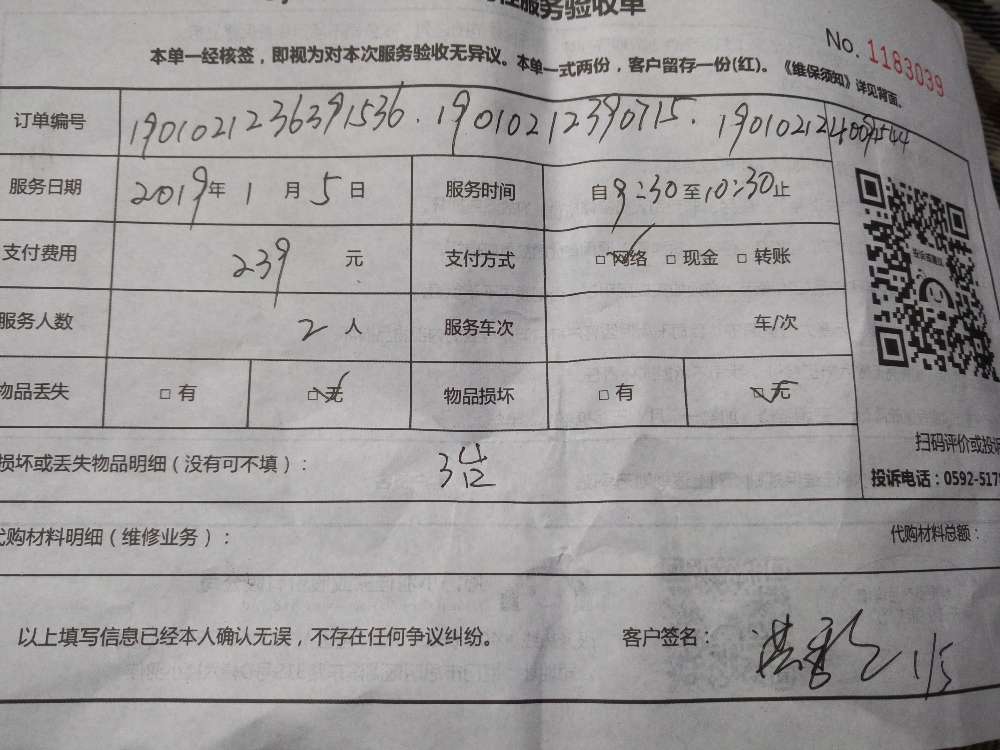 服务验收单
本单一经核签，即视为对本次服务验收无异议。本单一式两份，客户留存一份(红)。《维保须知》详见背面。
No. 1183039
订单编号 1901021236391536. 19010212390715. 1901021240094544
服务日期 2019年 1 月 5 日 服务时间 自 9:30 至 10:30 止
支付费用 239 元 支付方式 □ 网络 □ 现金 □ 转账
服务人数 2 人 服务车次 车/次
物品丢失 □ 有 □ 无 物品损坏 □ 有 □ 无
损坏或丢失物品明细（没有可不填）：
扫码评价或投诉
投诉电话：0592-517
代购材料明细（维修业务）： 代购材料总额：
以上填写信息已经本人确认无误，不存在任何争议纠纷。 客户签名： 1/5